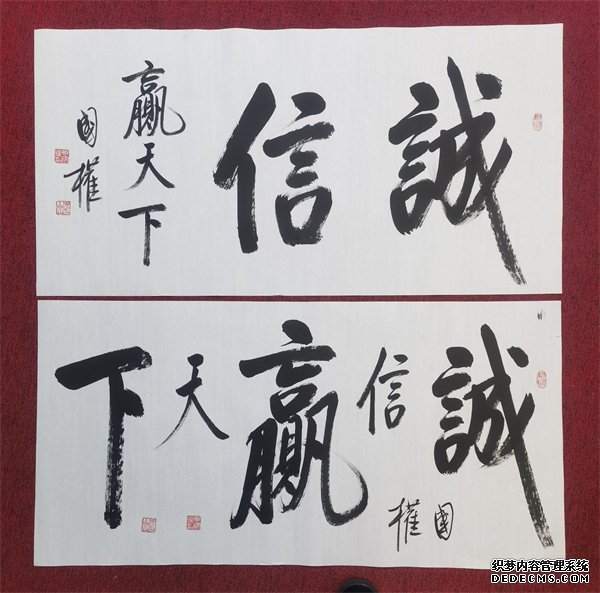 誠信
贏天下
國權
誠信贏天下
國權
织梦内容管理系统
DEDECMS.COM